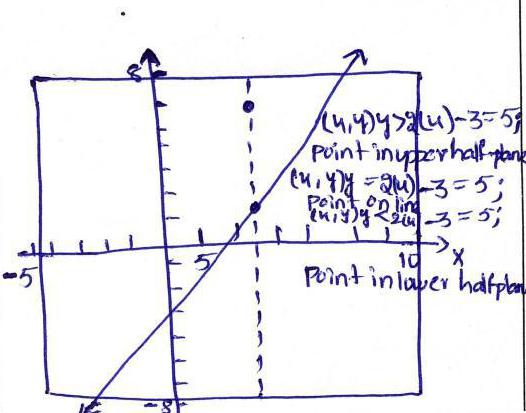 8
(u,y)y>2(u)-3=5;
point in upper half-plane
(u,y)y=2(u)-3=5;
point on line
(u,y)y<2(u-3=5;
-5
5
10
X
point in lower halfplan
-8